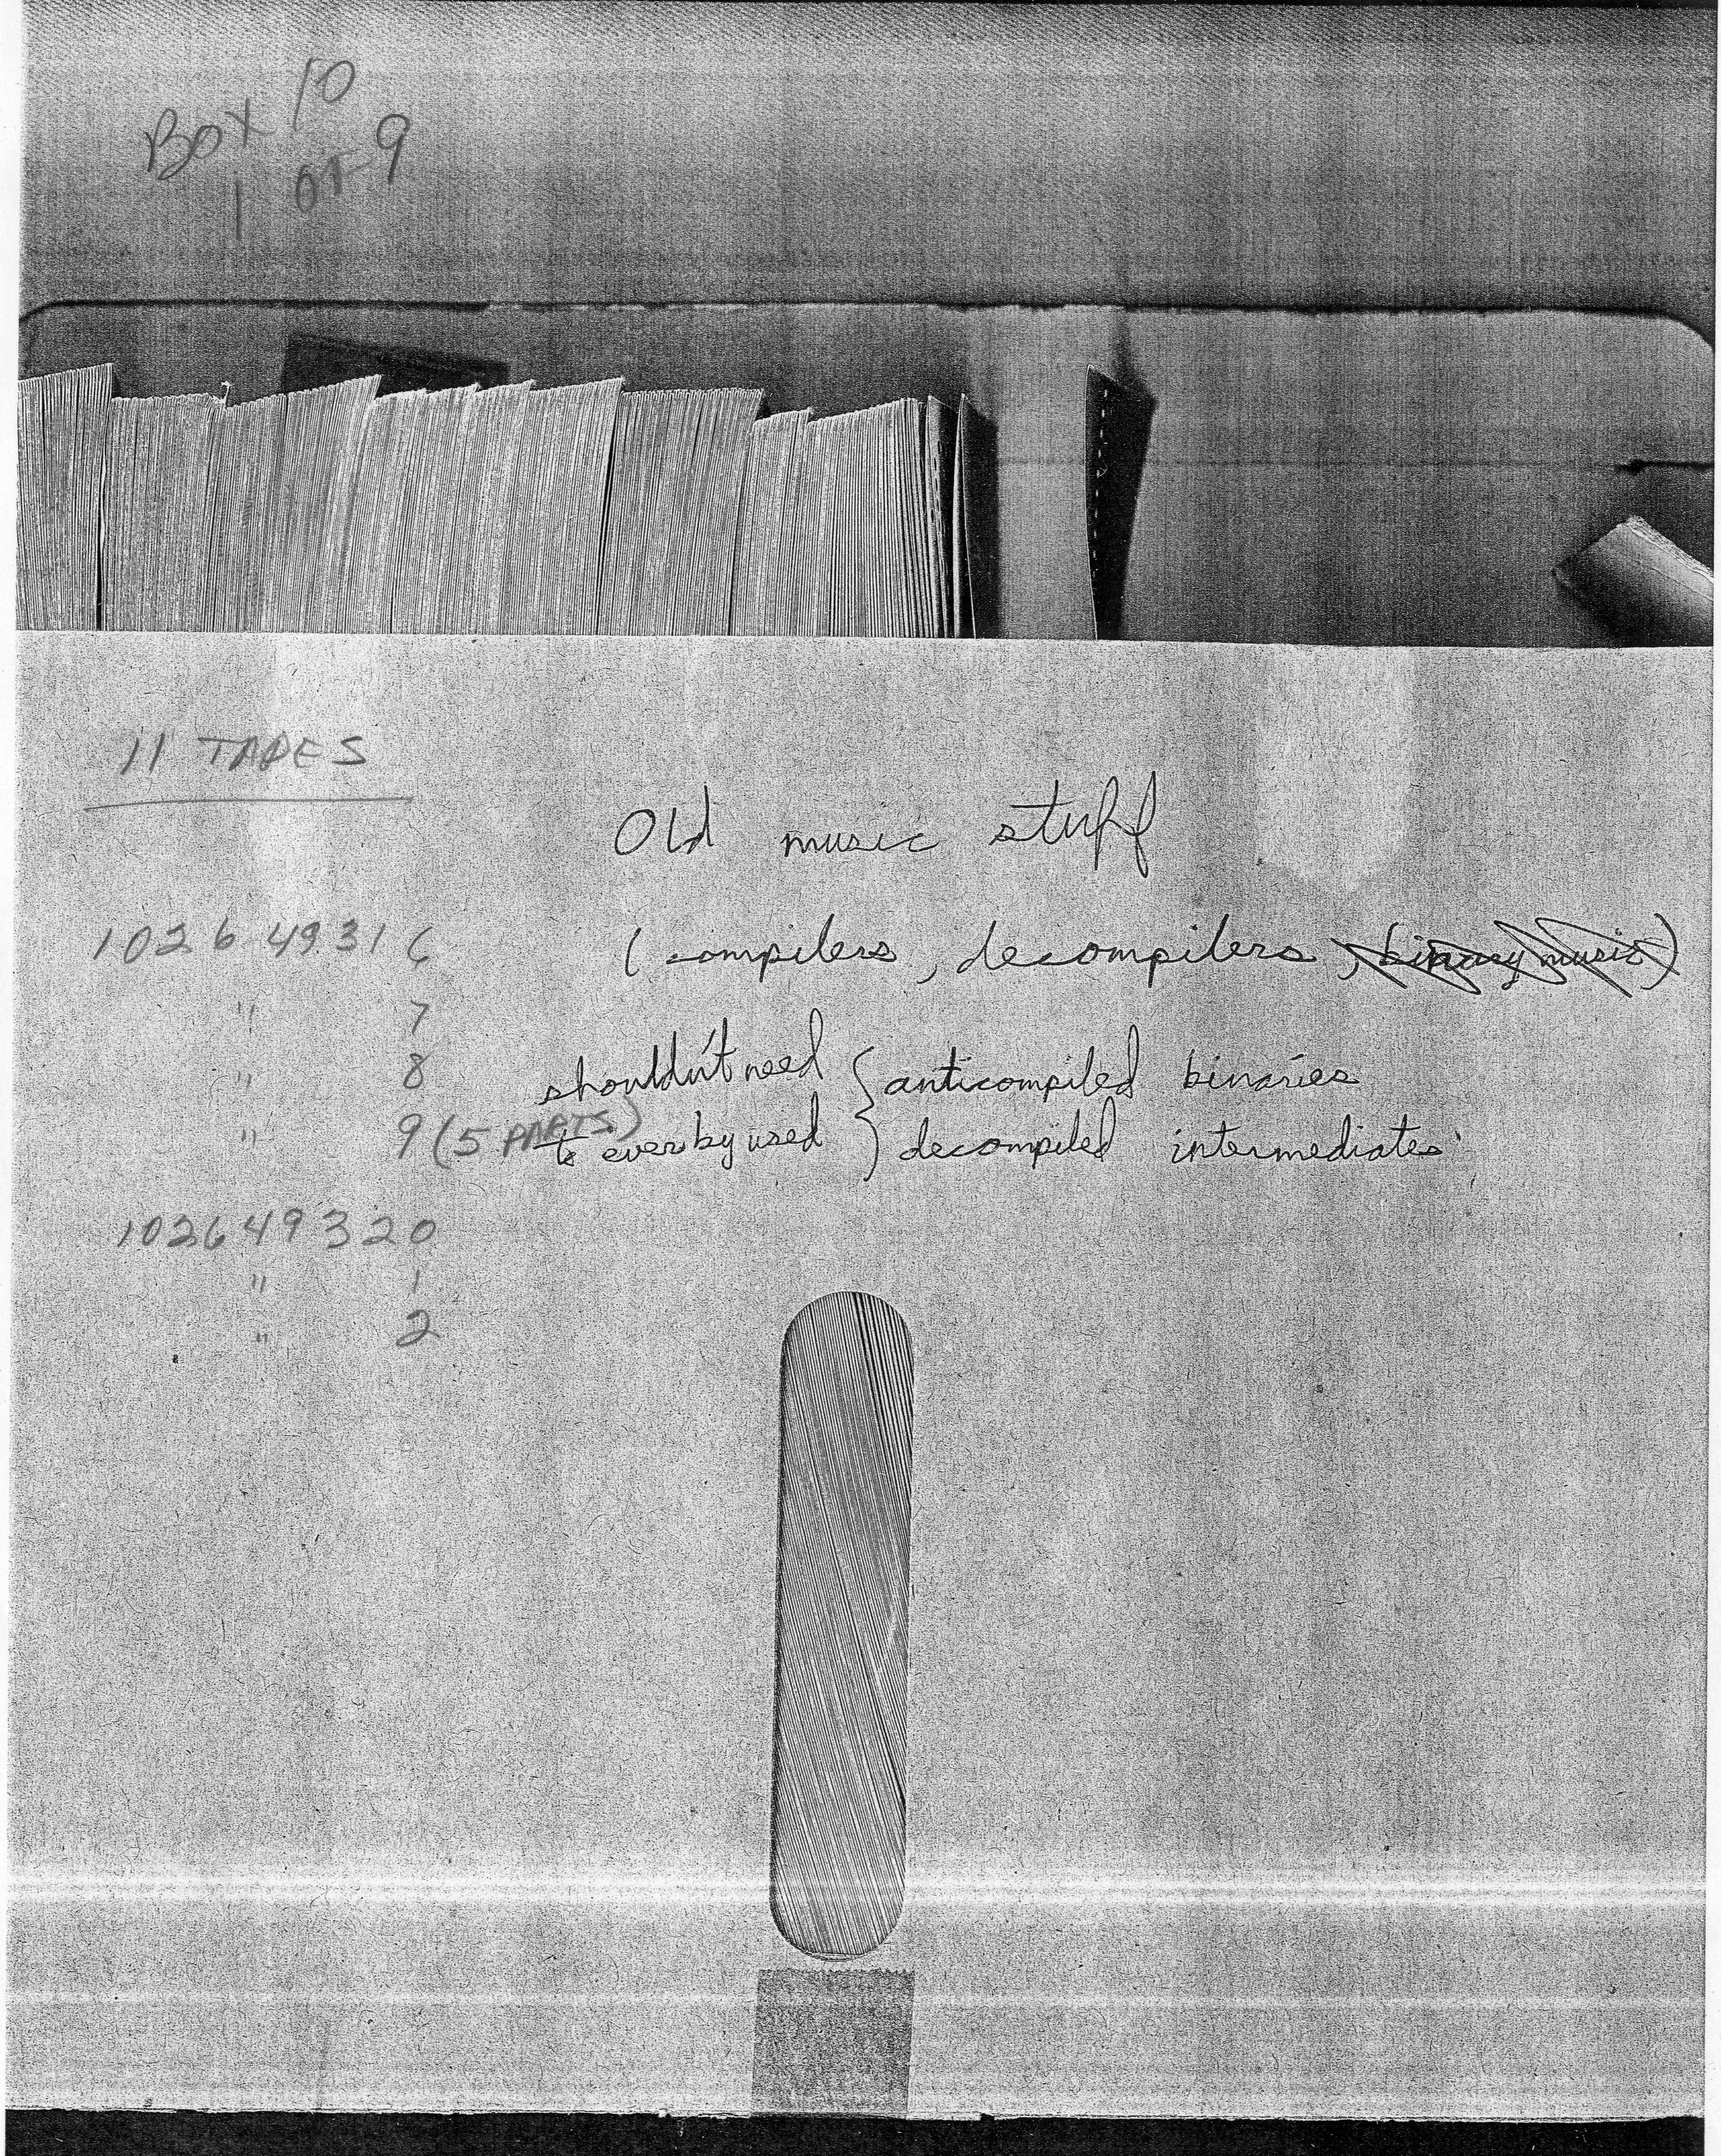 Box 10
1 OF 9
11 TAPES
Old music stuff
1026 49316 (compilers, decompilers, binary music)
" 7
" 8 shouldn't need { anticompiled binaries
" 9 (5 PARTS) to ever by used } decompiled intermediates
102649320
" 1
" 2